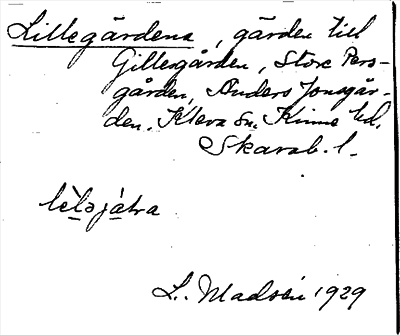 Lillegårdena, gården till
Gillesgården, Store Pers-
gården, Anders Jonsgår-
den. Kleva sn. Kinne hd.
Skarab. l.
lèlɘjátra
L. Madsén 1929